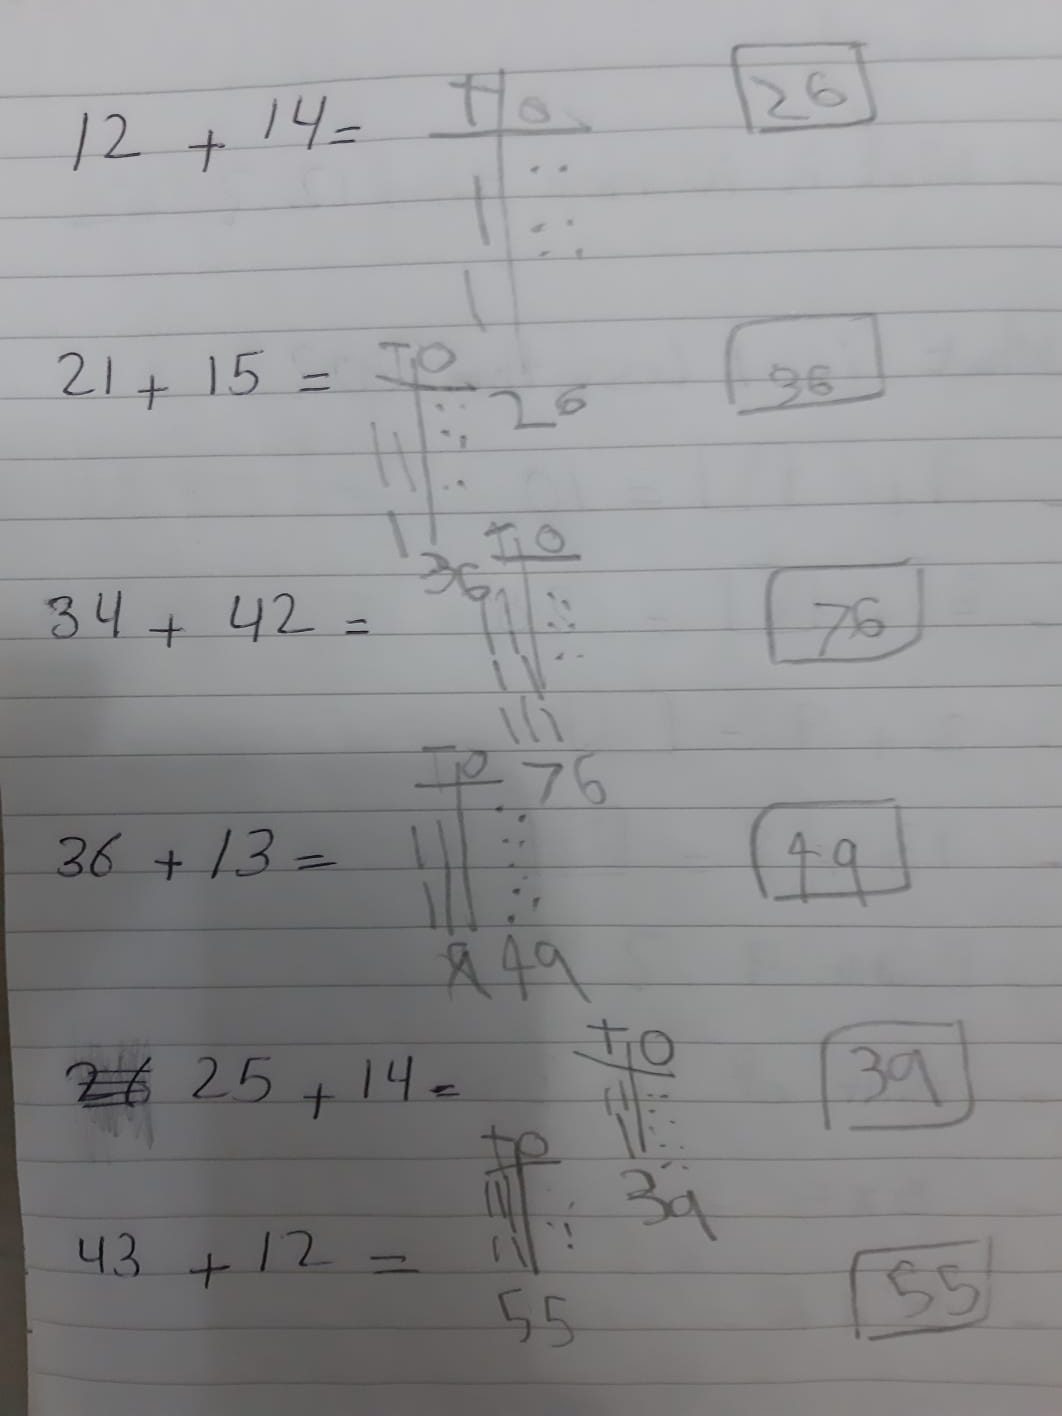 12 + 14 = T O 26
21 + 15 = T O 36
26
34 + 42 = T O 76
36
36 + 13 = T O 49
76
49
25 + 14 = T O 39
39
43 + 12 = T O 55
55